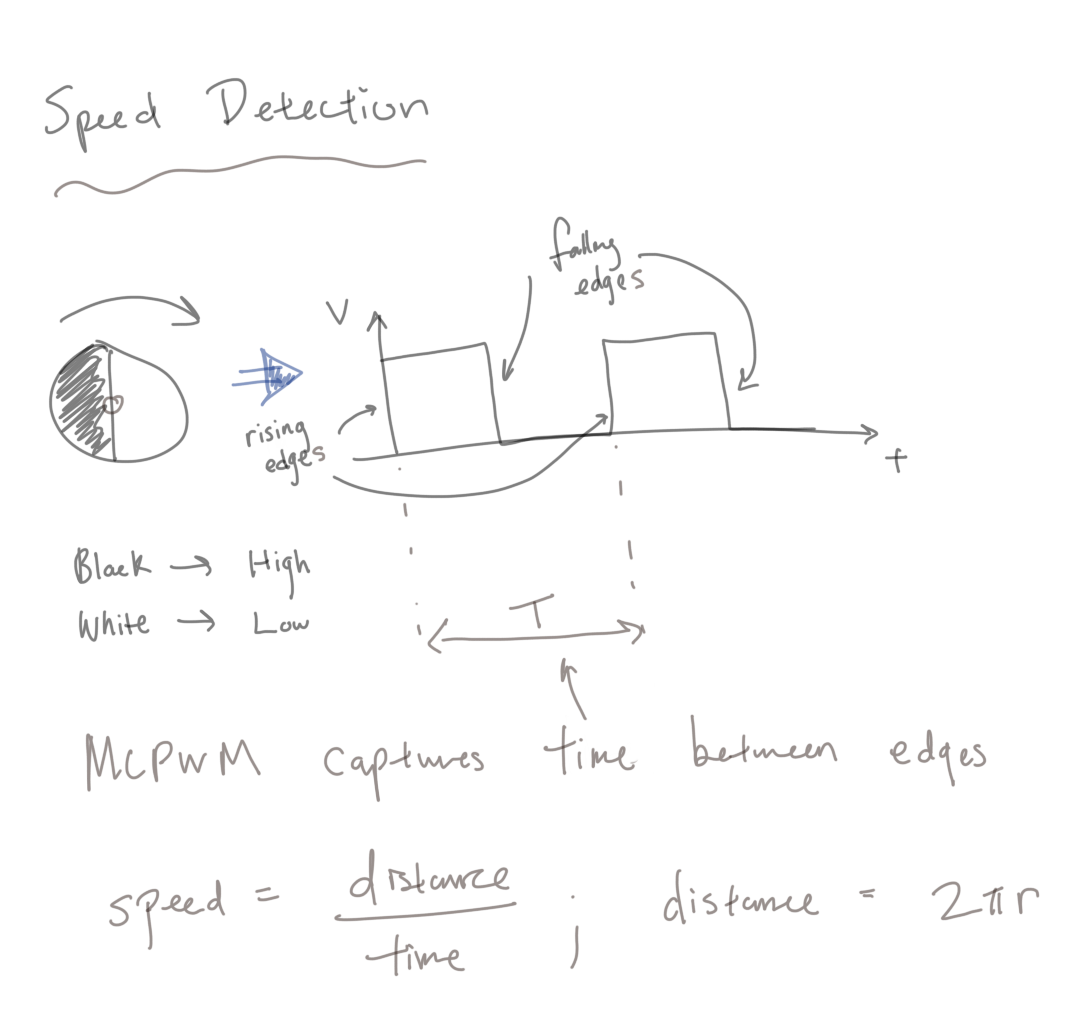 Speed Detection
falling
edges
V
rising
edges
t
Black → High
White → Low
T
MCPWM captures time between edges
speed = distance / time ; distance = 2πr